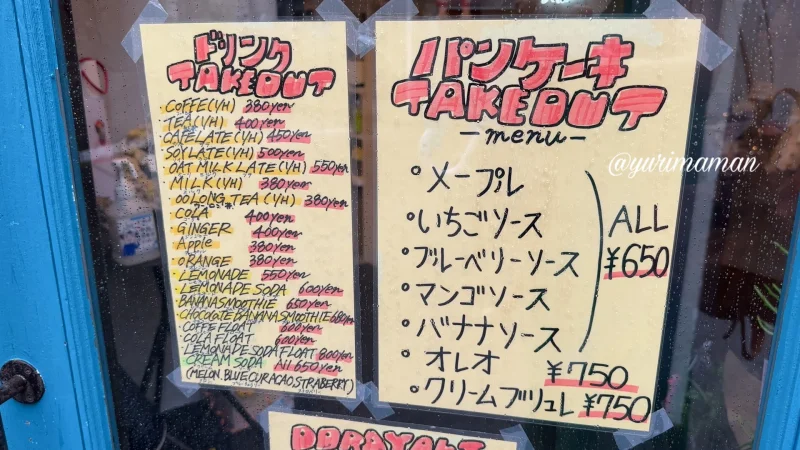 ドリンク
TAKEOUT
・COFFE(I/H) 380yen
・TEA(I/H) 400yen
・CAFE LATE(I/H) 450yen
・SOY LATE(I/H) 500yen
・OAT MILK LATE(I/H) 550yen
・MILK(I/H) 380yen
・OOLONG TEA(I/H) 380yen
・COLA 400yen
・GINGER 400yen
・Apple 380yen
・ORANGE 380yen
・LEMONADE 550yen
・LEMONADE SODA 600yen
・BANANA SMOOTHIE 650yen
・CHOCOLATE BANANA SMOOTHIE 680yen
・COFFE FLOAT 600yen
・COLA FLOAT 600yen
・LEMONADE SODA FLOAT 800yen
・CREAM SODA All 650yen
(MELON.BLUE CURACAO.STRABERRY)
パンケーキ
TAKEOUT
-menu-
@yurimaman
○メープル
○いちごソース
○ブルーベリーソース
○マンゴソース
○バナナソース
ALL
¥650
○オレオ ¥750
○クリームブリュレ ¥750